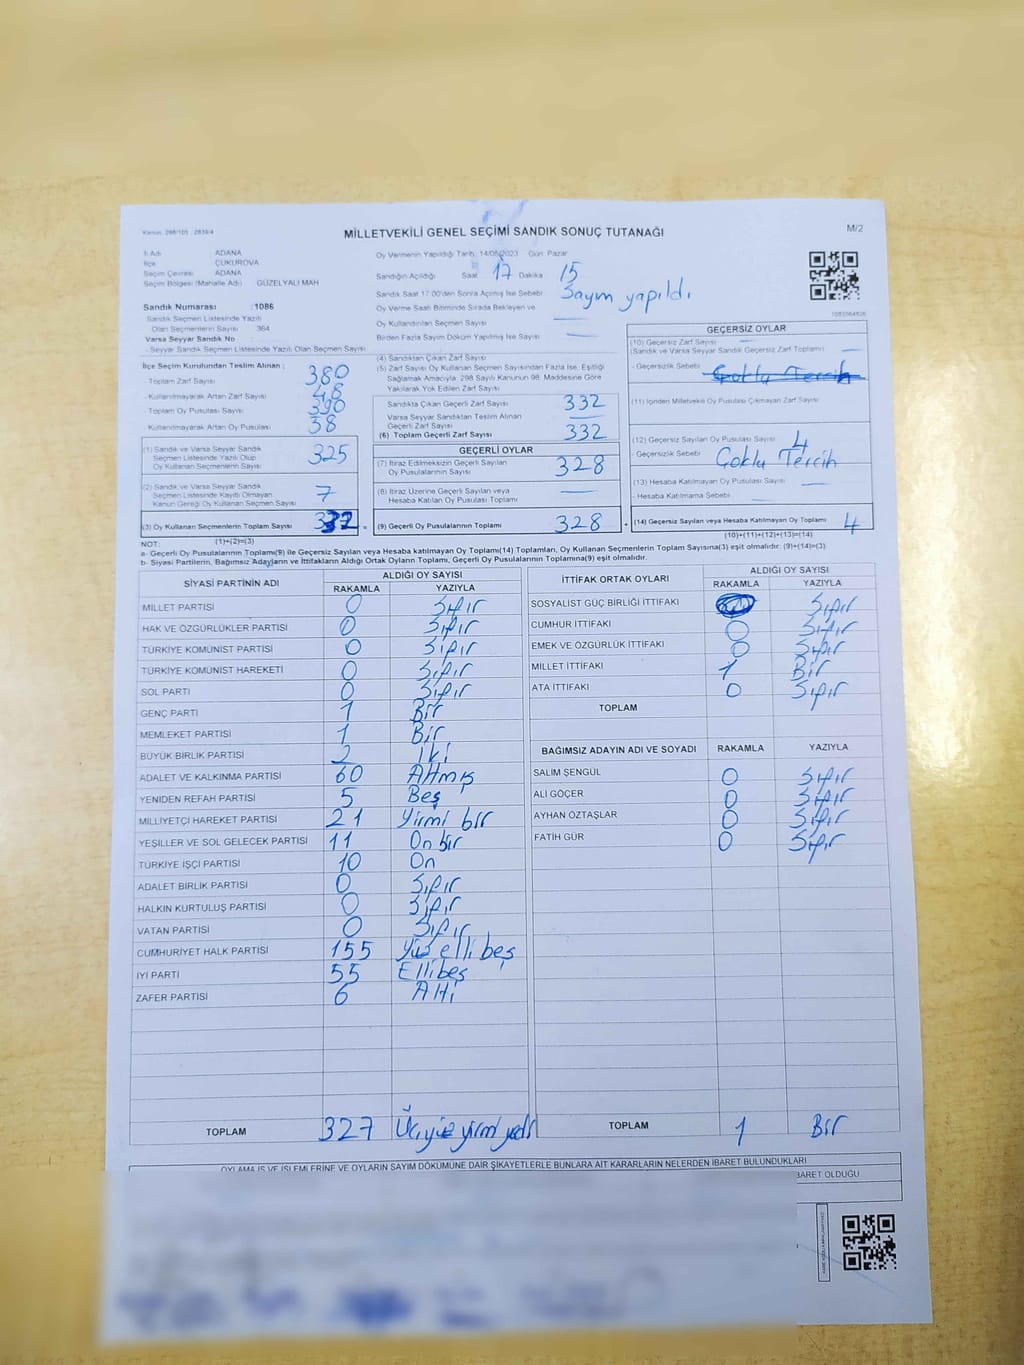 Kanun: 298/105 - 2839/4
MİLLETVEKİLİ GENEL SEÇİMİ SANDIK SONUÇ TUTANAĞI
M/2
İl Adı ADANA
İlçe ÇUKUROVA
Seçim Çevresi ADANA
Seçim Bölgesi (Mahalle Adı) GÜZELYALI MAH
Sandık Numarası :1086
Sandık Seçmen Listesinde Yazılı
Olan Seçmenlerin Sayısı 364
Varsa Seyyar Sandık No
- Seyyar Sandık Seçmen Listesinde Yazılı Olan Seçmen Sayısı
Oy Vermenin Yapıldığı Tarih: 14/05/2023 Gün: Pazar
Sandığın Açıldığı Saat 17 Dakika 15
Sandık Saat 17:00'den Sonra Açılmış İse Sebebi Sayım yapıldı
Oy Verme Saati Bitiminde Sırada Bekleyen ve
Oy Kullandırılan Seçmen Sayısı
Birden Fazla Sayım Döküm Yapılmış İse Sayısı
İlçe Seçim Kurulundan Teslim Alınan ;
- Toplam Zarf Sayısı 380
- Kullanılmayarak Artan Zarf Sayısı 48
- Toplam Oy Pusulası Sayısı 390
- Kullanılmayarak Artan Oy Pusulası 38
(1) Sandık ve Varsa Seyyar Sandık
Seçmen Listesinde Yazılı Olup
Oy Kullanan Seçmenlerin Sayısı 325
(2) Sandık ve Varsa Seyyar Sandık
Seçmen Listesinde Kayıtlı Olmayan
Kanun Gereği Oy Kullanan Seçmen Sayısı 7
(3) Oy Kullanan Seçmenlerin Toplam Sayısı 332
(1)+(2)=(3)
(4) Sandıktan Çıkan Zarf Sayısı
(5) Zarf Sayısı Oy Kullanan Seçmen Sayısından Fazla İse, Eşitliği
Sağlamak Amacıyla, 298 Sayılı Kanunun 98. Maddesine Göre
Yakılarak Yok Edilen Zarf Sayısı
Sandıkta Çıkan Geçerli Zarf Sayısı 332
Varsa Seyyar Sandıktan Teslim Alınan
Geçerli Zarf Sayısı
(6) Toplam Geçerli Zarf Sayısı 332
GEÇERLİ OYLAR
(7) İtiraz Edilmeksizin Geçerli Sayılan
Oy Pusulalarının Sayısı 328
(8) İtiraz Üzerine Geçerli Sayılan veya
Hesaba Katılan Oy Pusulası Toplamı
(9) Geçerli Oy Pusulalarının Toplamı 328
GEÇERSİZ OYLAR
(10) Geçersiz Zarf Sayısı
(Sandık ve Varsa Seyyar Sandık Geçersiz Zarf Toplamı)
- Geçersizlik Sebebi Çoklu Tercih
(11) İçinden Milletvekili Oy Pusulası Çıkmayan Zarf Sayısı
(12) Geçersiz Sayılan Oy Pusulası Sayısı 4
- Geçersizlik Sebebi Çoklu Tercih
(13) Hesaba Katılmayan Oy Pusulası Sayısı
- Hesaba Katılmama Sebebi
(14) Geçersiz Sayılan veya Hesaba Katılmayan Oy Toplamı 4
(10)+(11)+(12)+(13)=(14)
NOT:
a- Geçerli Oy Pusulalarının Toplamı(9) ile Geçersiz Sayılan veya Hesaba katılmayan Oy Toplamı(14) Toplamları, Oy Kullanan Seçmenlerin Toplam Sayısına(3) eşit olmalıdır. (9)+(14)=(3)
b- Siyasi Partilerin, Bağımsız Adayların ve İttifakların Aldığı Ortak Oyların Toplamı, Geçerli Oy Pusulalarının Toplamına(9) eşit olmalıdır.
SİYASİ PARTİNİN ADI ALDIĞI OY SAYISI
RAKAMLA YAZIYLA
MİLLET PARTİSİ 0 Sıfır
HAK VE ÖZGÜRLÜKLER PARTİSİ 0 Sıfır
TÜRKİYE KOMÜNİST PARTİSİ 0 Sıfır
TÜRKİYE KOMÜNİST HAREKETİ 0 Sıfır
SOL PARTİ 0 Sıfır
GENÇ PARTİ 1 Bir
MEMLEKET PARTİSİ 1 Bir
BÜYÜK BİRLİK PARTİSİ 2 İki
ADALET VE KALKINMA PARTİSİ 60 Altmış
YENİDEN REFAH PARTİSİ 5 Beş
MİLLİYETÇİ HAREKET PARTİSİ 21 Yirmi bir
YEŞİLLER VE SOL GELECEK PARTİSİ 11 On bir
TÜRKİYE İŞÇİ PARTİSİ 10 On
ADALET BİRLİK PARTİSİ 0 Sıfır
HALKIN KURTULUŞ PARTİSİ 0 Sıfır
VATAN PARTİSİ 0 Sıfır
CUMHURİYET HALK PARTİSİ 155 Yüz elli beş
İYİ PARTİ 55 Elli beş
ZAFER PARTİSİ 6 Altı
TOPLAM 327 Üçyüz yirmi yedi
İTTİFAK ORTAK OYLARI ALDIĞI OY SAYISI
RAKAMLA YAZIYLA
SOSYALİST GÜÇ BİRLİĞİ İTTİFAKI Sıfır
CUMHUR İTTİFAKI 0 Sıfır
EMEK VE ÖZGÜRLÜK İTTİFAKI 0 Sıfır
MİLLET İTTİFAKI 1 Bir
ATA İTTİFAKI 0 Sıfır
TOPLAM
BAĞIMSIZ ADAYIN ADI VE SOYADI RAKAMLA YAZIYLA
SALİM ŞENGÜL 0 Sıfır
ALİ GÖÇER 0 Sıfır
AYHAN ÖZTAŞLAR 0 Sıfır
FATİH GÜR 0 Sıfır
TOPLAM 1 Bir
OYLAMA İŞ VE İŞLEMLERİNE VE OYLARIN SAYIM DÖKÜMÜNE DAİR ŞİKAYETLERLE BUNLARA AİT KARARLARIN NELERDEN İBARET BULUNDUKLARI
BARET OLDUĞU